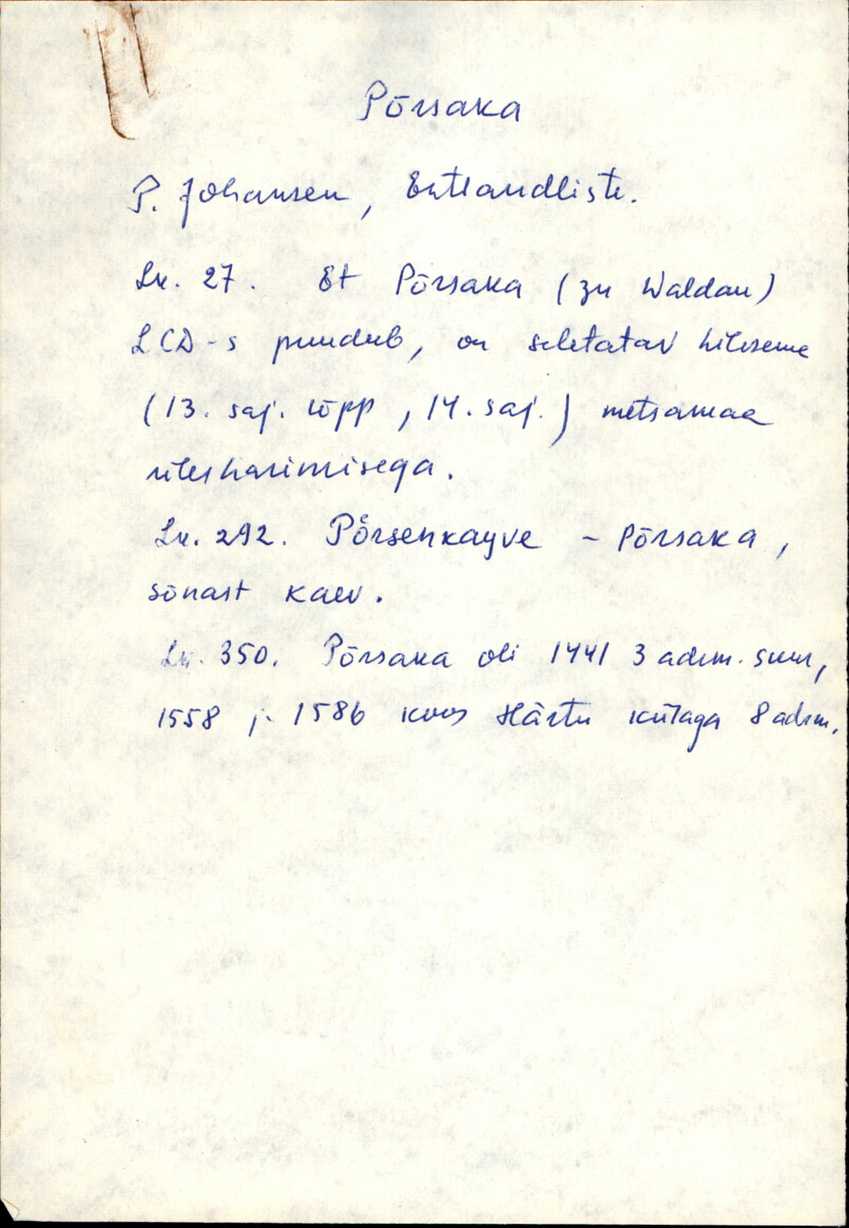 Põrsaka
P. Johansen, Estlandliste.
Lk. 27. Et Põrsaka (zu Waldau)
LCD-s puudub, on seletatav hilisema
(13. saj. lõpp, 14. saj.) metsamaa
ülesharimisega.
Lk. 292. Põrsenkayve - Põrsaka,
sõnast kaev.
Lk. 350. Põrsaka oli 1441 3 adrm. suur,
1558 j. 1586 koos Härtu külaga 8 adrm.